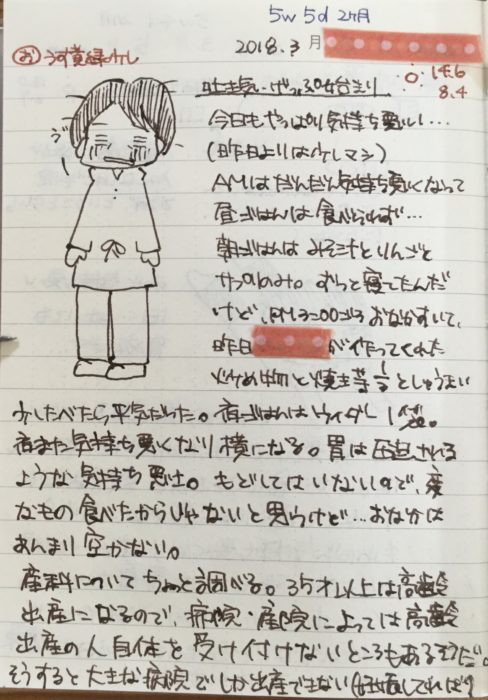 5w 5d 2ヶ月
2018.3月
14.6
8.4
お
吐き気・げっぷ
今日もやっぱり気持ち悪い…
(昨日よりは少しマシ)
AMはだんだん気持ち悪くなって
昼ごはんは食べられず…
朝ごはんは みそ汁とりんごと
ずっと寝てたんだ
けど、PM3:00ごろ おなかすいて、
昨日 が作ってくれた
炒め物と焼き芋 としゅうまい
少したべたら平気だった。夜ごはんはウイダー 1袋。
夜また気持ち悪くなり横になる。胃は圧迫される
ような気持ち悪さ。もどしてはいないので、変
なもの食べたからじゃないと思うけど…おなかは
あんまり空かない。
産科についてちょっと調べる。35才以上は高齢
出産になるので、病院・産院によっては高齢
出産の人自体を受け付けないところもあるそうだ。
そうすると大きな病院でしか出産できない